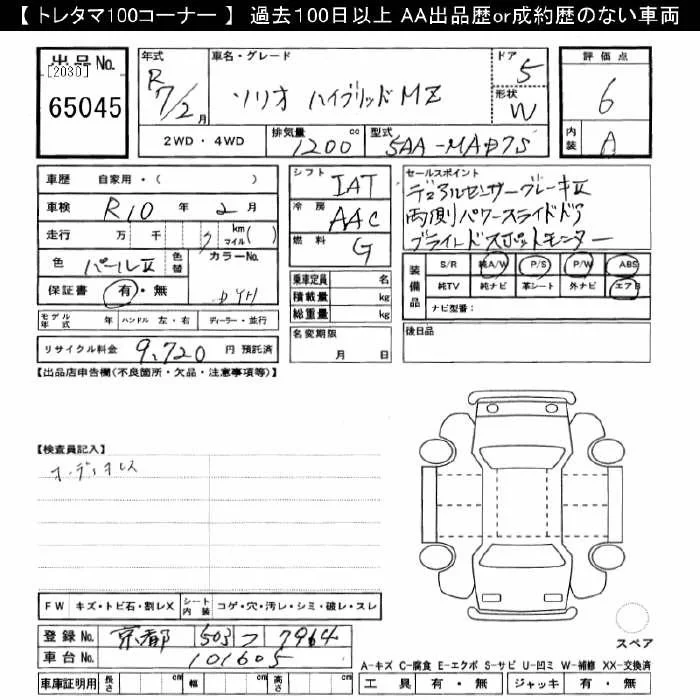 【 トレタマ100コーナー 】 過去100日以上 AA出品歴or成約歴のない車両
出品No.
[2030]
65045
年式 R7/2月
車名・グレード ソリオ ハイブリッドMZ
ドア 5
形状 W
評価点 6
内装 A
2WD・4WD
排気量 1200 cc
型式 5AA-MAD7S
車歴 自家用・( )
車検 R10年 2月
走行 万 千 km マイル( )
色 パールⅡ 色替 カラーNo.
保証書 有・無
モデル年式 年 ハンドル 左・右 ディーラー・並行
リサイクル料金 9,720 円 預託済
シフト IAT
冷房 AAC
燃料 G
乗車定員 名
積載量 kg
総重量 kg
名変期限 月 日
セールスポイント
デュアルセンサーブレーキⅡ
両側パワースライドドア
ブラインドスポットモニター
装備品
S/R 純A/W P/S P/W ABS
純TV 純ナビ 革シート 外ナビ エアB
ナビ型種:
後日品
【出品店申告欄(不良箇所・欠品・注意事項等)】
【検査員記入】
オーディオレス
FW キズ・トビ石・割レX シート内装 コゲ・穴・汚レ・シミ・破レ・スレ
登録No. 京都 503 つ 7964
車台No. 101605
車庫証明用 長さ cm 幅 cm 高さ cm
スペア
A-キズ C-腐食 E-エクボ S-サビ U-凹ミ W-補修 XX-交換済
工具 有・無 ジャッキ 有・無